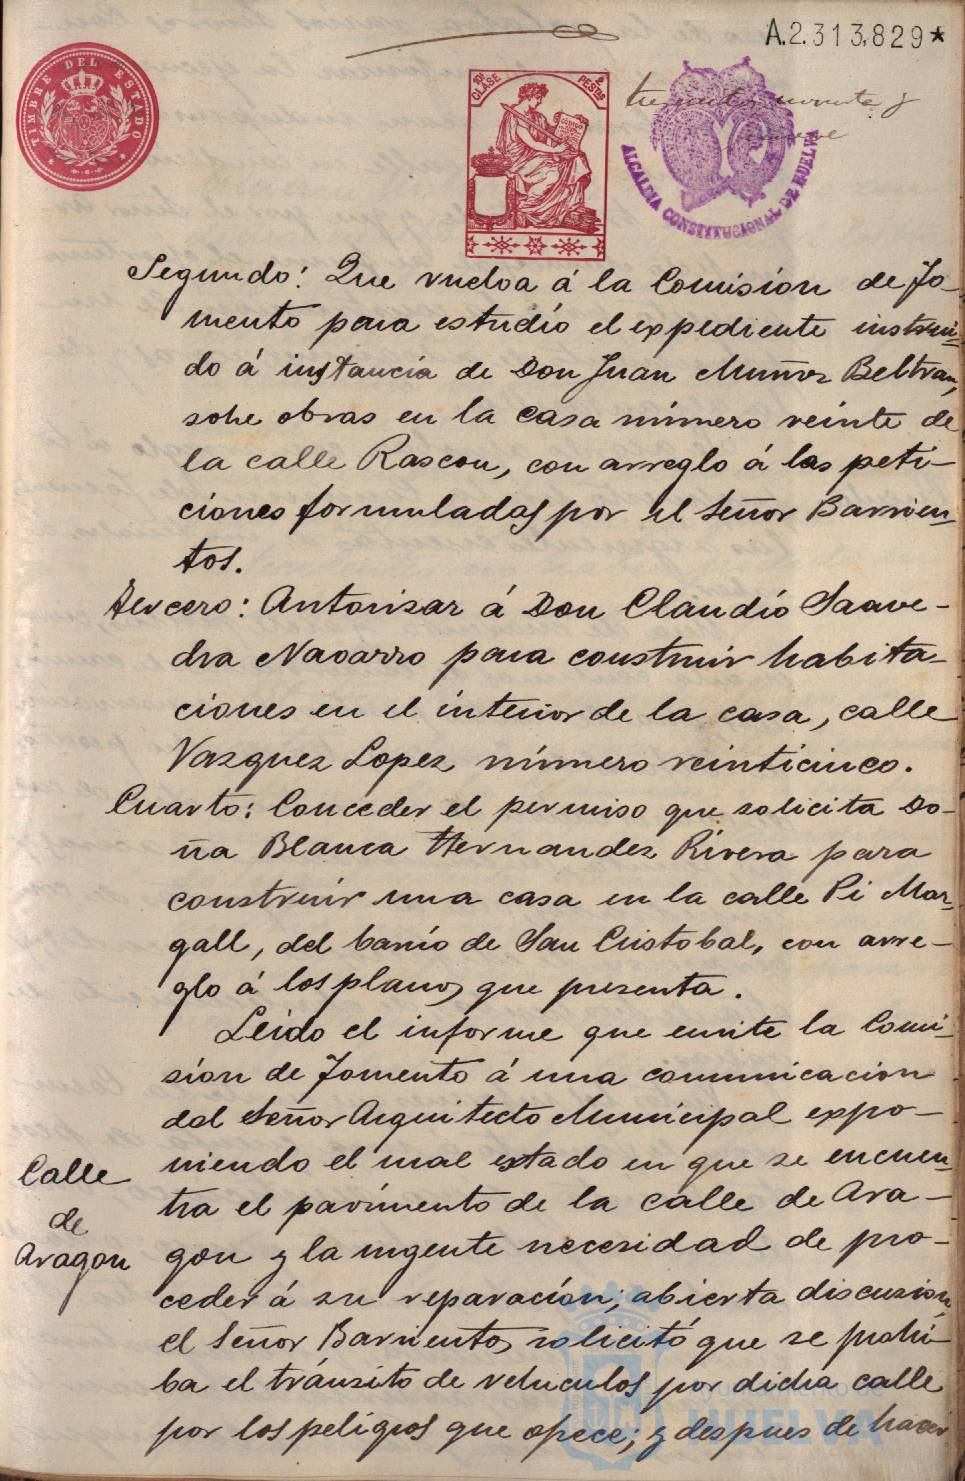 A.2.313,829★
TIMBRE DEL ESTADO
11ª CLASE
PESTAS
ALCALDIA CONSTITUCIONAL DE HUELVA
Segundo: Que vuelva á la Comisión de Fo-
mento para estudio el expediente instrui-
do á instancia de Don Juan Muñoz Beltran,
sobre obras en la casa número veinte de
la calle Rascon, con arreglo á las peti-
ciones formuladas por el Señor Barrien-
tos.
Tercero: Autorizar á Don Claudio Saave-
dra Navarro para construir habita-
ciones en el interior de la casa, calle
Vazquez Lopez número veinticinco.
Cuarto: Conceder el permiso que solicita Do-
ña Blanca Hernandez Rivera para
construir una casa en la calle Pi Mar-
gall, del barrio de San Cristobal, con arre-
glo á los planos que presenta.
Leido el informe que emite la Comi-
sión de Fomento á una comunicacion
del Señor Arquitecto Municipal expo-
niendo el mal estado en que se encuen-
Calle
de
Aragon
tra el pavimento de la calle de Ara-
gon y la urgente necesidad de pro-
ceder á su reparación; abierta discusion,
el Señor Barrientos solicitó que se prohi-
ba el tránsito de vehiculos por dicha calle
por los peligros que ofrece; y despues de hacer
Ayuntamiento de
HUELVA